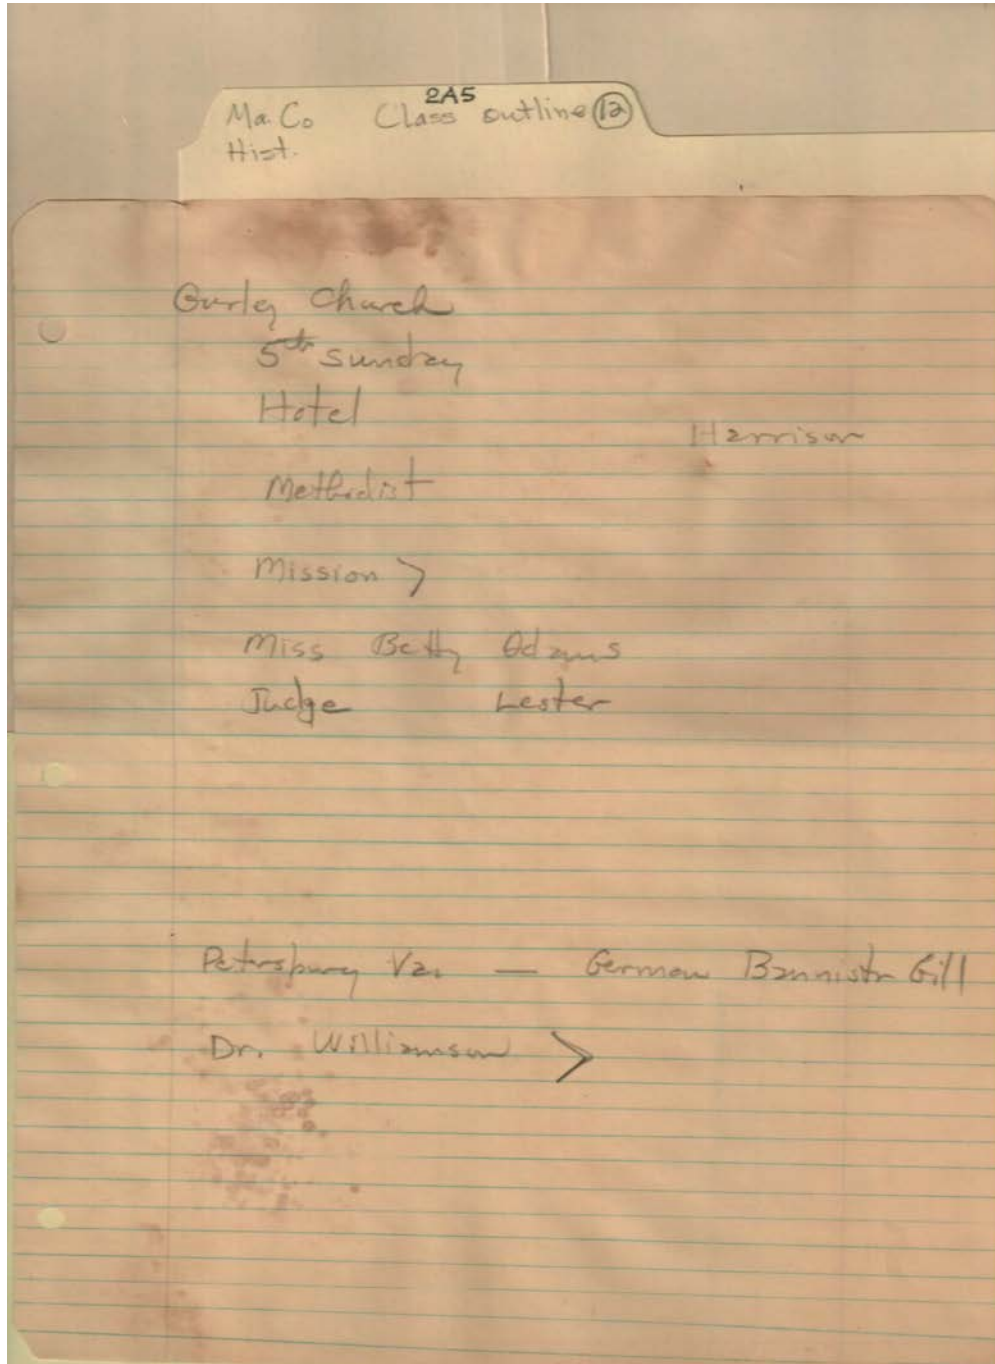 2A5
Ma. Co Class outline 12
Hist.
Gurley Church
5th Sunday
Hotel
Harrison
Methodist
Mission >
Miss Betty Adams
Judge Lester
Petersburg Va. — German Bannistr Gill
Dr. Williamson >